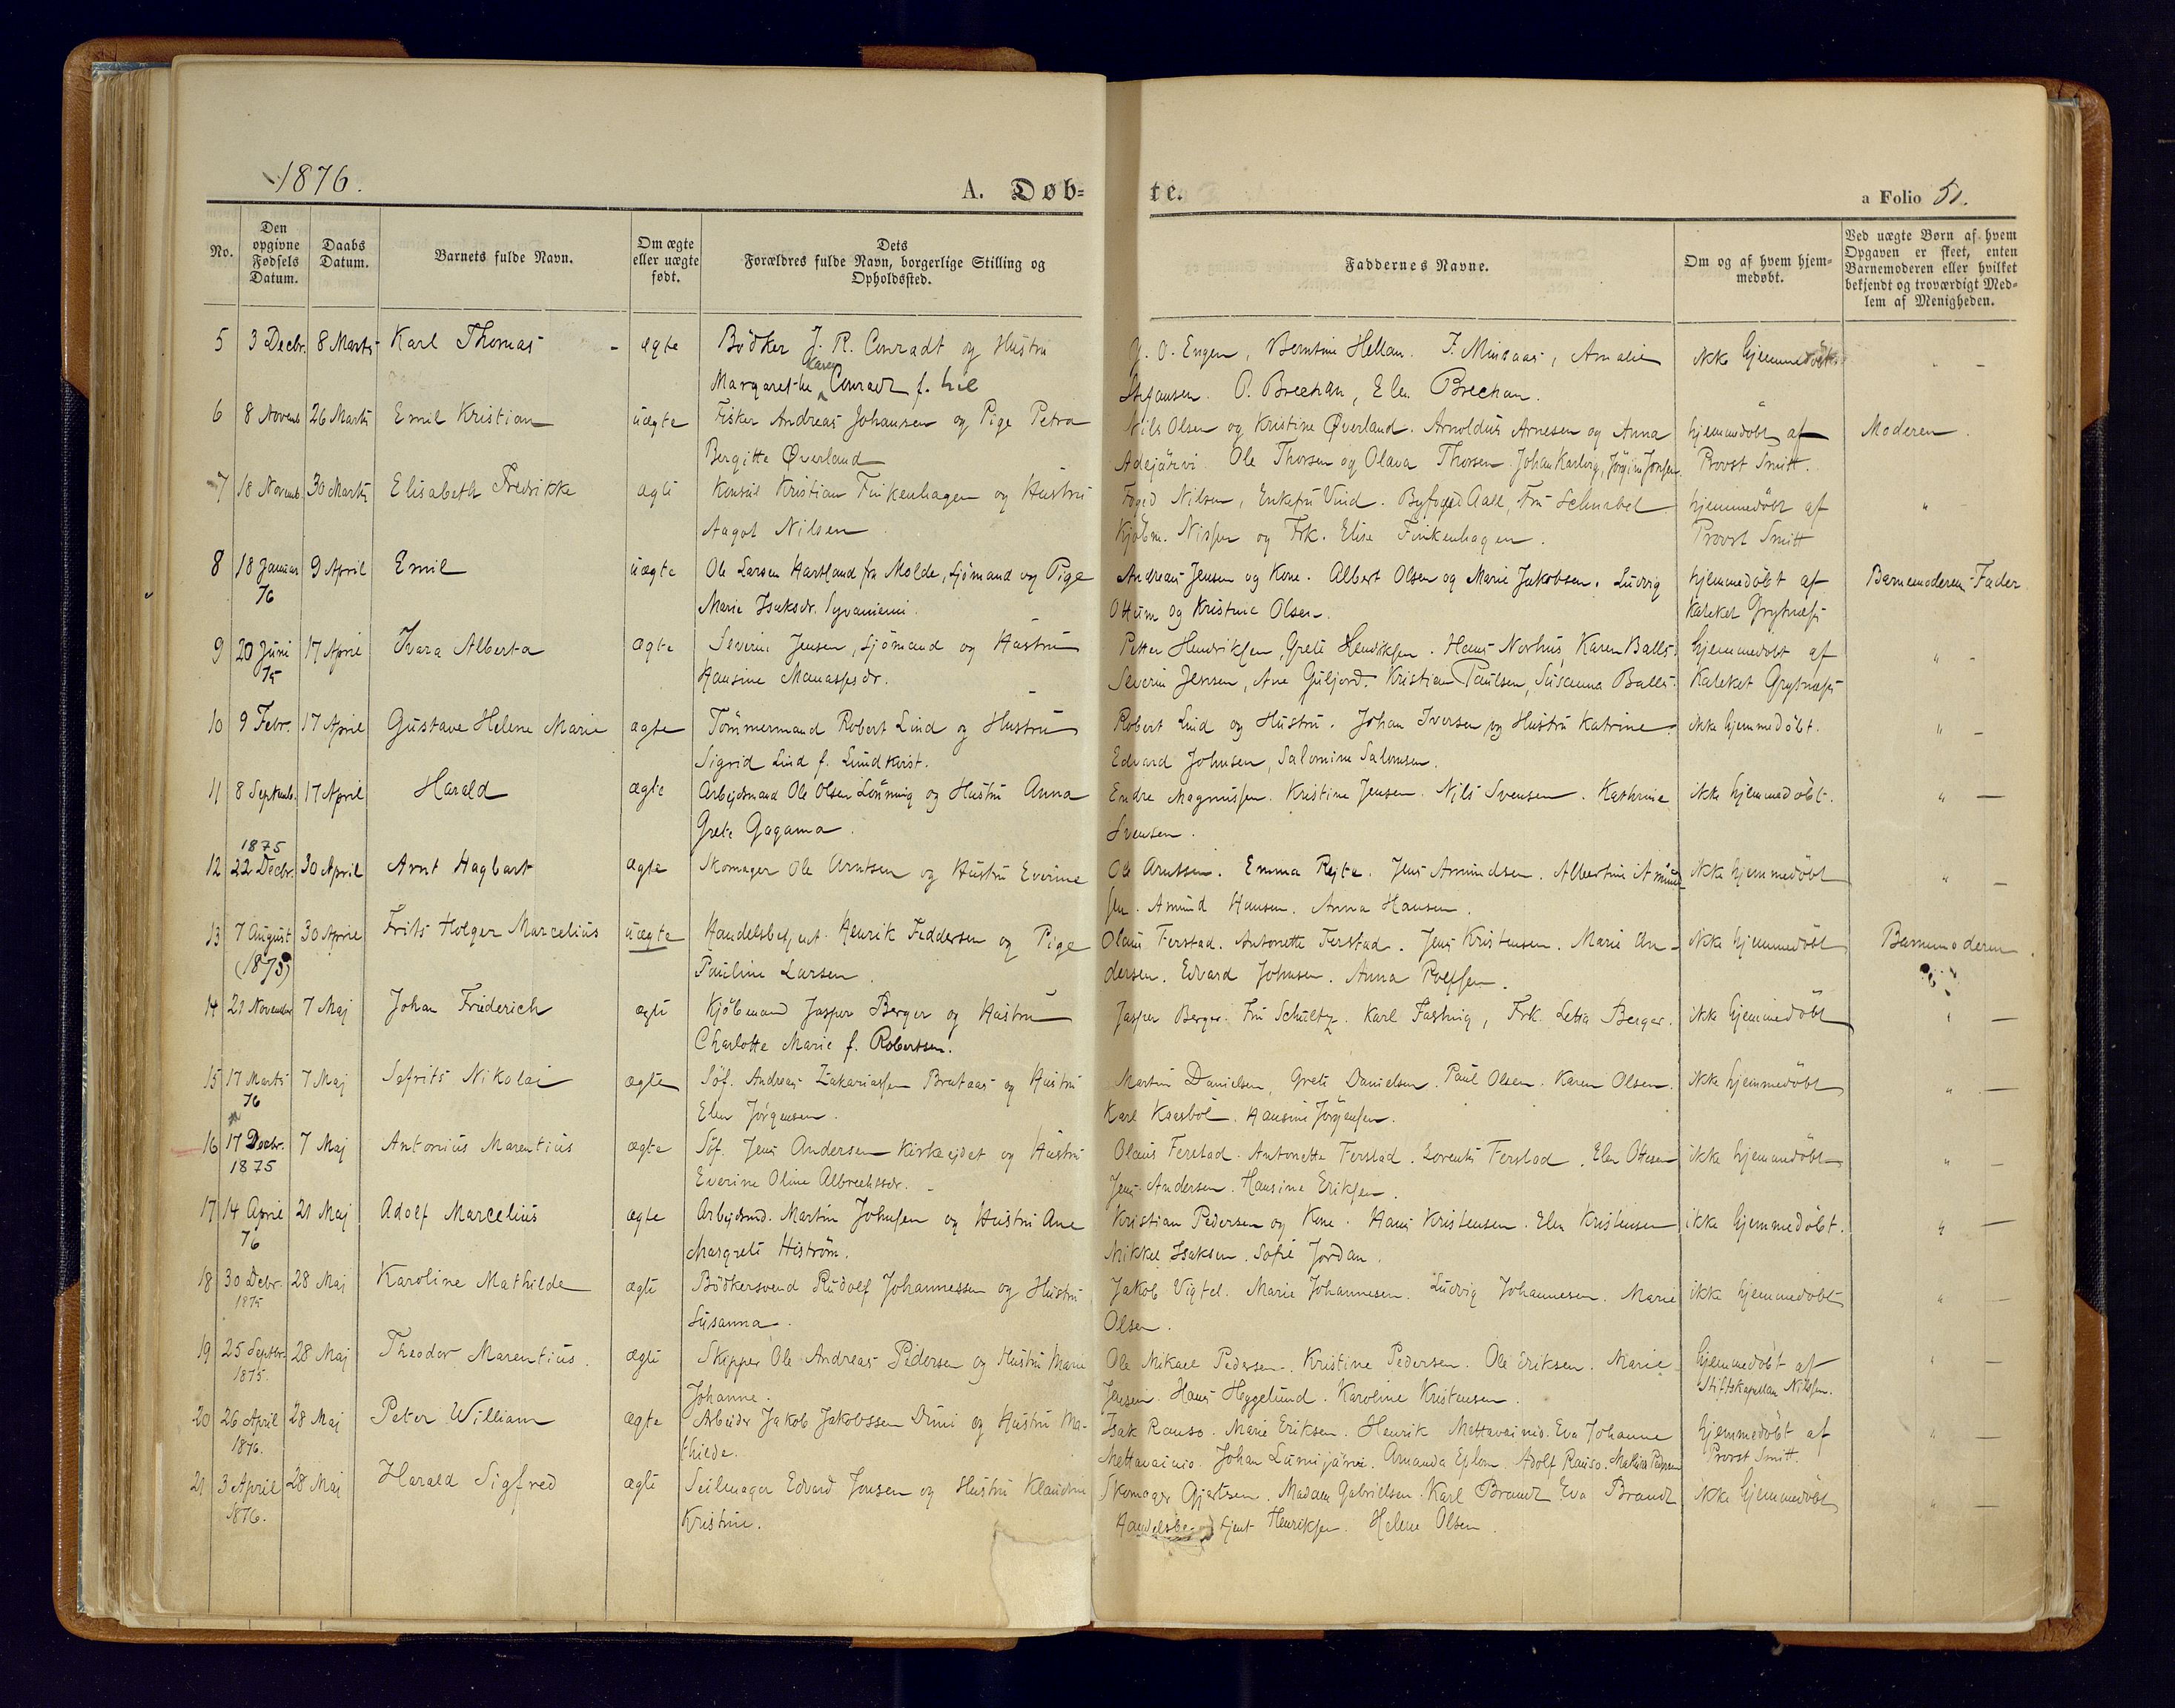 1876.
A. Døb-
te.
a Folio 51.
No.
Den opgivne Fødsels Datum.
Daabs Datum.
Barnets fulde Navn.
Om ægte eller uægte født.
Dets Forældres fulde Navn, borgerlige Stilling og Opholdssted.
Faddernes Navne.
Om og af hvem hjem-medøbt.
Ved uægte Børn af hvem Opgaven er skeet, enten Barnemoderen eller hvilket bekjendt og troværdigt Med-lem af Menigheden.
5 3 Decbr. 8 Marts Karl Thomas - ægte Bödker J. R. Conradt og Hustru O. Engen, Berntine Hellan. Amalie ikke hjemmedøbt " -
Margarethe Karen Conradt f. O. Brechan, Elen Brechan.
6 8 Novemb 26 Marts Emil Kristian uægte Fisker Andreas Johansen og Pige Petra Nils Olsen og Kristine Øverland. Arnoldus Arnesen og Anna hjemmedöbt af Moderen.
Bergitte Øverland Adejärvi. Ole Thorsen og Olava Thorsen. Johan Provst Smitt.
7 18 Novemb. 30 Marts Elisabeth Fredrikke ægte Konsul Kristian Finkenhagen og Hustru Foged Nilsen, Enkefru Vind. Byfoged Aall, Fru Schnabel hjemmedöbt af "
Aagot Nilsen Kjöbm. Nissen og Frk. Elise Finkenhagen. Provst Smitt
8 18 Januar 9 April Emil uægte Ole Larsen Hartland fra Molde, Sjömand og Pige Andreas Jensen og Kone. Albert Olsen og Marie Jakobsen. Ludvig hjemmedöbt af Barnemoderens Fader
76 Marie Isaksdr. Syvaniemi. Ottum og Kristine Olsen. Kateket Grytnæss
9 20 Juni 17 April Ivara Alberta ægte Severin Jensen, Sjömand og Hustru Petter Henriksen, Grete Henriksen. Hans Norhus, Karen Balls. hjemmedöbt af " -
75 Hansine Manassesdr. Severin Jensen, Ane Guljord. Kristian Paulsen, Susanna Balls. Kateket Grytnæss
10 9 Febr. 17 April Gustave Helene Marie ægte Tömmermand Robert Lind og Hustru Robert Lind og Hustru. Johan Iversen og Hustru Katrine. ikke hjemmedöbt. " -
Sigrid Lind f. Lundkvist. Edvard Johnsen, Salomine Salomsen.
11 8 Septemb. 17 April Harald ægte Arbejdsmand Ole Olsen Lönning og Hustru Anna Endre Magnussen. Kristine Jensen. Nils Svensen. Kathrine ikke hjemmedöbt. " —
Grete Gagama. Svensen.
1875
12 22 Decbr. 30 April Arnt Hagbart ægte Skomager Ole Arntsen og Hustru Everine Ole Arntsen. Emma Rejta. Jens Amundsen. Albertine Amund- ikke hjemmedöbt " —
sen. Amund Hansen. Anna Hansen.
13 7 August 30 April Frits Holger Marcelius uægte Handelsbetjent Henrik Feddersen og Pige Olaus Ferstad. Antonette Ferstad. Jens Kristensen. Marie An- ikke hjemmedöbt Barnemoderen.
(1875) Pauline Larsen. dersen. Edvard Johnsen. Anna
14 21 November 7 Maj Johan Friederich ægte Kjöbmand Jasper Berger og Hustru Jasper Berger. Fru Schultz. Karl Fasting, Frk. Letta Berger. ikke hjemmedöbt " —
Charlotte Marie f. Robertsen.
15 17 Marts 7 Maj Sefrits Nikolai ægte Söf. Andreas Zakariassen Brataas og Hustru Martin Danielsen, Grete Danielsen. Paul Olsen. Karen Olsen. ikke hjemmedöbt " —
76 Elen Jörgensen. Karl Kaesböl. Hansine Jörgensen.
16 17 Decbr. 7 Maj Antonius Marentius ægte Söf. Jens Andersen Kirkejdet og Hustru Olaus Ferstad. Antonette Ferstad. Lorents Ferstad. Elen Ottesen ikke hjemmedöbt " —
1875 Everine Oline Albrechtsdr. Jens Andersen. Hansine Eriksen.
17 14 April 21 Maj Adolf Marcelius ægte Arbejdsmd. Martin Johnsen og Hustru Ane Kristian Pedersen og Kone. Hans Kristensen. Elen Kristensen ikke hjemmedöbt. " —
76 Margrete Hiström. Mikkel Isaksen. Sofie Jordan.
18 30 Debr. 28 Maj Karoline Mathilde ægte Bödkersvend Rudolf Johannessen og Hustru Jakob Vigtel. Marie Johannesen. Ludvig Johannesen. Marie ikke hjemmedöbt " —
1875 Susanna. Olsen.
19 25 Septbr. 28 Maj Theodor Marentius. ægte Skipper Ole Andreas Pedersen og Hustru Marie Ole Mikael Pedersen. Kristine Pedersen. Ole Eriksen. Marie hjemmedöbt af " —
1875. Johanne. Jensen. Hans Heggelund. Karoline Kristensen. Stiftskapellan Nilssen.
20 26 April 28 Maj Peter William ægte Arbeider Jakob Jakobssen og Hustru Ma- Isak Rauso. Marie Eriksen. Henrik Mettavainio. Eva Johanne hjemmedöbt af " —
1876. thilde. Mettavainio. Johan Lumijärvi. Amanda Adolf Rauso. Pedersen Provst Smitt.
21 3 April 28 Maj Harald Sigfred ægte Seilmager Edvard Jensen og Hustru Klaudine Skomager Gjertsen. Madam Gabrielsen. Karl Brandt Eva Brandt ikke hjemmedöbt " —
1876. Kristine. Handelsbetjent Henriksen. Helene Olsen.